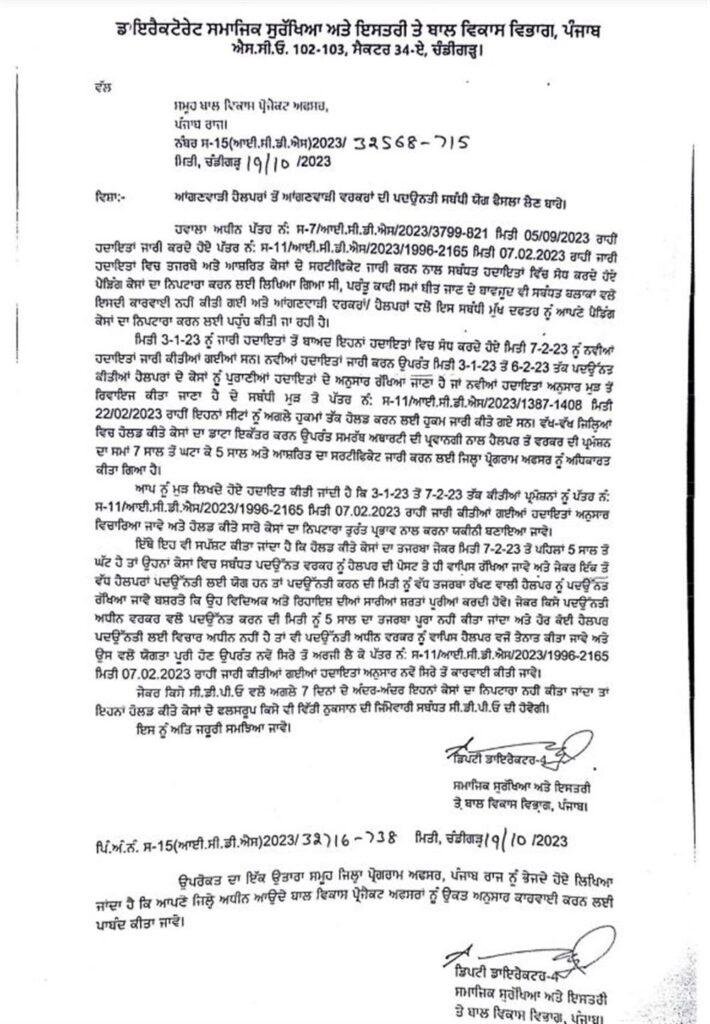 ਡਾਇਰੈਕਟੋਰੇਟ ਸਮਾਜਿਕ ਸੁਰੱਖਿਆ ਅਤੇ ਇਸਤਰੀ ਤੇ ਬਾਲ ਵਿਕਾਸ ਵਿਭਾਗ, ਪੰਜਾਬ
ਐਸ.ਸੀ.ਓ. 102-103, ਸੈਕਟਰ 34-ਏ, ਚੰਡੀਗੜ੍ਹ।
ਵੱਲ
ਸਮੂਹ ਬਾਲ ਵਿਕਾਸ ਪ੍ਰੋਜੈਕਟ ਅਫਸਰ,
ਪੰਜਾਬ ਰਾਜ।
ਨੰਬਰ ਸ-15(ਆਈ.ਸੀ.ਡੀ.ਐਸ)2023/ 32568-715
ਮਿਤੀ, ਚੰਡੀਗੜ੍ਹ 19/10 /2023
ਵਿਸ਼ਾ:- ਆਂਗਣਵਾੜੀ ਹੈਲਪਰਾਂ ਤੋਂ ਆਂਗਣਵਾੜੀ ਵਰਕਰਾਂ ਦੀ ਪਦਉਨਤੀ ਸਬੰਧੀ ਯੋਗ ਫੈਸਲਾ ਲੈਣ ਬਾਰੇ।
ਹਵਾਲਾ ਅਧੀਨ ਪੱਤਰ ਨੰ: ਸ-7/ਆਈ.ਸੀ.ਡੀ.ਐਸ/2023/3799-821 ਮਿਤੀ 05/09/2023 ਰਾਹੀਂ
ਹਦਾਇਤਾਂ ਜਾਰੀ ਕਰਦੇ ਹੋਏ ਪੱਤਰ ਨੰ: ਸ-11/ਆਈ.ਸੀ.ਡੀ.ਐਸ/2023/1996-2165 ਮਿਤੀ 07.02.2023 ਰਾਹੀਂ ਜਾਰੀ
ਹਦਾਇਤਾਂ ਵਿਚ ਤਜਰਬੇ ਅਤੇ ਆਸ਼ਰਿਤ ਕੇਸਾਂ ਦੇ ਸਰਟੀਫਿਕੇਟ ਜਾਰੀ ਕਰਨ ਨਾਲ ਸਬੰਧਤ ਹਦਾਇਤਾਂ ਵਿੱਚ ਸੋਧ ਕਰਦੇ ਹੋਏ
ਪੈਡਿੰਗ ਕੇਸਾਂ ਦਾ ਨਿਪਟਾਰਾ ਕਰਨ ਲਈ ਲਿਖਿਆ ਗਿਆ ਸੀ, ਪਰੰਤੂ ਕਾਫੀ ਸਮਾਂ ਬੀਤ ਜਾਣ ਦੇ ਬਾਵਜੂਦ ਵੀ ਸਬੰਧਤ ਬਲਾਕਾਂ ਵਲੋ
ਇਸਦੀ ਕਾਰਵਾਈ ਨਹੀਂ ਕੀਤੀ ਗਈ ਅਤੇ ਆਂਗਣਵਾੜੀ ਵਰਕਰਾਂ/ ਹੈਲਪਰਾਂ ਵਲੋ ਇਸ ਸਬੰਧੀ ਮੁੱਖ ਦਫਤਰ ਨੂੰ ਆਪਣੇ ਪੈਡਿੰਗ
ਕੇਸਾਂ ਦਾ ਨਿਪਟਾਰਾ ਕਰਨ ਲਈ ਪਹੁੰਚ ਕੀਤੀ ਜਾ ਰਹੀ ਹੈ।
ਮਿਤੀ 3-1-23 ਨੂੰ ਜਾਰੀ ਹਦਾਇਤਾਂ ਤੋਂ ਬਾਅਦ ਇਹਨਾਂ ਹਦਾਇਤਾਂ ਵਿਚ ਸੋਧ ਕਰਦੇ ਹੋਏ ਮਿਤੀ 7-2-23 ਨੂੰ ਨਵੀਆਂ
ਹਦਾਇਤਾਂ ਜਾਰੀ ਕੀਤੀਆਂ ਗਈਆਂ ਸਨ। ਨਵੀਆਂ ਹਦਾਇਤਾਂ ਜਾਰੀ ਕਰਨ ਉਪਰੰਤ ਮਿਤੀ 3-1-23 ਤੋਂ 6-2-23 ਤੱਕ ਪਦਉੱਨਤ
ਕੀਤੀਆਂ ਹੈਲਪਰਾਂ ਦੇ ਕੇਸਾਂ ਨੂੰ ਪੁਰਾਣੀਆਂ ਹਦਾਇਤਾਂ ਦੇ ਅਨੁਸਾਰ ਰੱਖਿਆ ਜਾਣਾ ਹੈ ਜਾਂ ਨਵੀਆਂ ਹਦਾਇਤਾਂ ਅਨੁਸਾਰ ਮੁੜ ਤੋਂ
ਰਿਵਾਇਜ਼ ਕੀਤਾ ਜਾਣਾ ਹੈ ਦੇ ਸਬੰਧੀ ਮੁੜ ਤੋ ਪੱਤਰ ਨੰ: ਸ-11/ਆਈ.ਸੀ.ਡੀ.ਐਸ/2023/1387-1408 ਮਿਤੀ
22/02/2023 ਰਾਹੀਂ ਇਹਨਾਂ ਸੀਟਾਂ ਨੂੰ ਅਗਲੇ ਹੁਕਮਾਂ ਤੱਕ ਹੋਲਡ ਕਰਨ ਲਈ ਹੁਕਮ ਜਾਰੀ ਕੀਤੇ ਗਏ ਸਨ। ਵੱਖ-ਵੱਖ ਜਿਲ੍ਹਿਆਂ
ਵਿਚ ਹੋਲਡ ਕੀਤੇ ਕੇਸਾਂ ਦਾ ਡਾਟਾ ਇਕੱਤਰ ਕਰਨ ਉਪਰੰਤ ਸਮਰੱਥ ਅਥਾਰਟੀ ਦੀ ਪ੍ਰਵਾਨਗੀ ਨਾਲ ਹੈਲਪਰ ਤੋਂ ਵਰਕਰ ਦੀ ਪ੍ਰਮੋਸ਼ਨ
ਦਾ ਸਮਾਂ 7 ਸਾਲ ਤੋਂ ਘਟਾ ਕੇ 5 ਸਾਲ ਅਤੇ ਆਸ਼ਰਿਤ ਦਾ ਸਰਟੀਫਿਕੇਟ ਜਾਰੀ ਕਰਨ ਲਈ ਜਿਲ੍ਹਾ ਪ੍ਰੋਗਰਾਮ ਅਫਸਰ ਨੂੰ ਅਧਿਕਾਰਤ
ਕੀਤਾ ਗਿਆ ਹੈ।
ਆਪ ਨੂੰ ਮੁੜ ਲਿਖਦੇ ਹੋਏ ਹਦਾਇਤ ਕੀਤੀ ਜਾਂਦੀ ਹੈ ਕਿ 3-1-23 ਤੋਂ 7-2-23 ਤੱਕ ਕੀਤੀਆਂ ਪ੍ਰਮੋਸ਼ਨਾਂ ਨੂੰ ਪੱਤਰ ਨੰ:
ਸ-11/ਆਈ.ਸੀ.ਡੀ.ਐਸ/2023/1996-2165 ਮਿਤੀ 07.02.2023 ਰਾਹੀਂ ਜਾਰੀ ਕੀਤੀਆਂ ਗਈਆਂ ਹਦਾਇਤਾਂ ਅਨੁਸਾਰ
ਵਿਚਾਰਿਆ ਜਾਵੇ ਅਤੇ ਹੋਲਡ ਕੀਤੇ ਸਾਰੇ ਕੇਸਾਂ ਦਾ ਨਿਪਟਾਰਾ ਤੁਰੰਤ ਪ੍ਰਭਾਵ ਨਾਲ ਕਰਨਾ ਯਕੀਨੀ ਬਣਾਇਆ ਜਾਵੇ।
ਇੱਥੇ ਇਹ ਵੀ ਸਪੱਸ਼ਟ ਕੀਤਾ ਜਾਂਦਾ ਹੈ ਕਿ ਹੋਲਡ ਕੀਤੇ ਕੇਸਾਂ ਦਾ ਤਜਰਬਾ ਜੇਕਰ ਮਿਤੀ 7-2-23 ਤੋਂ ਪਹਿਲਾਂ 5 ਸਾਲ ਤੋਂ
ਘੱਟ ਹੈ ਤਾਂ ਉਹਨਾਂ ਕੇਸਾਂ ਵਿਚ ਸਬੰਧਤ ਪਦਉੱਨਤ ਵਰਕਰ ਨੂੰ ਹੈਲਪਰ ਦੀ ਪੋਸਟ ਤੇ ਹੀ ਵਾਪਿਸ ਰੱਖਿਆ ਜਾਵੇ ਅਤੇ ਜੇਕਰ ਇੱਕ ਤੋਂ
ਵੱਧ ਹੈਲਪਰਾਂ ਪਦਉੱਨਤੀ ਲਈ ਯੋਗ ਹਨ ਤਾਂ ਪਦਉੱਨਤੀ ਕਰਨ ਦੀ ਮਿਤੀ ਨੂੰ ਵੱਧ ਤਜਰਬਾ ਰੱਖਣ ਵਾਲੀ ਹੈਲਪਰ ਨੂੰ ਪਦਉੱਨਤ
ਰੱਖਿਆ ਜਾਵੇ ਬਸ਼ਰਤੇ ਕਿ ਉਹ ਵਿਦਿਅਕ ਅਤੇ ਰਿਹਾਇਸ਼ ਦੀਆਂ ਸਾਰੀਆਂ ਸ਼ਰਤਾਂ ਪੂਰੀਆਂ ਕਰਦੀ ਹੋਵੇ। ਜੇਕਰ ਕਿਸੇ ਪਦਉੱਨਤੀ
ਅਧੀਨ ਵਰਕਰ ਵਲੋਂ ਪਦਉੱਨਤ ਕਰਨ ਦੀ ਮਿਤੀ ਨੂੰ 5 ਸਾਲ ਦਾ ਤਜਰਬਾ ਪੂਰਾ ਨਹੀਂ ਕੀਤਾ ਜਾਂਦਾ ਅਤੇ ਹੋਰ ਕੋਈ ਹੈਲਪਰ
ਪਦਉੱਨਤੀ ਲਈ ਵਿਚਾਰ ਅਧੀਨ ਨਹੀਂ ਹੈ ਤਾਂ ਵੀ ਪਦਉੱਨਤੀ ਅਧੀਨ ਵਰਕਰ ਨੂੰ ਵਾਪਿਸ ਹੈਲਪਰ ਵਜੋਂ ਤੈਨਾਤ ਕੀਤਾ ਜਾਵੇ ਅਤੇ
ਉਸ ਵਲੋ ਯੋਗਤਾ ਪੂਰੀ ਹੋਣ ਉਪਰੰਤ ਨਵੇਂ ਸਿਰੇ ਤੋਂ ਅਰਜੀ ਲੈ ਕੇ ਪੱਤਰ ਨੰ: ਸ-11/ਆਈ.ਸੀ.ਡੀ.ਐਸ/2023/1996-2165
ਮਿਤੀ 07.02.2023 ਰਾਹੀਂ ਜਾਰੀ ਕੀਤੀਆਂ ਗਈਆਂ ਹਦਾਇਤਾਂ ਅਨੁਸਾਰ ਨਵੇਂ ਸਿਰੇ ਤੋਂ ਕਾਰਵਾਈ ਕੀਤੀ ਜਾਵੇ।
ਜੇਕਰ ਕਿਸੇ ਸੀ.ਡੀ.ਪੀ.ਓ ਵਲੋਂ ਅਗਲੇ 7 ਦਿਨਾਂ ਦੇ ਅੰਦਰ-ਅੰਦਰ ਇਹਨਾਂ ਕੇਸਾਂ ਦਾ ਨਿਪਟਾਰਾ ਨਹੀਂ ਕੀਤਾ ਜਾਂਦਾ ਤਾਂ
ਇਹਨਾਂ ਹੋਲਡ ਕੀਤੇ ਕੇਸਾਂ ਦੇ ਫਲਸਰੂਪ ਕਿਸੇ ਵੀ ਵਿੱਤੀ ਨੁਕਸਾਨ ਦੀ ਜਿੰਮੇਵਾਰੀ ਸਬੰਧਤ ਸੀ.ਡੀ.ਪੀ.ਓ ਦੀ ਹੋਵੇਗੀ।
ਇਸ ਨੂੰ ਅਤਿ ਜਰੂਰੀ ਸਮਝਿਆ ਜਾਵੇ।
ਡਿਪਟੀ ਡਾਇਰੈਕਟਰ-4
ਸਮਾਜਿਕ ਸੁਰੱਖਿਆ ਅਤੇ ਇਸਤਰੀ
ਤੇ ਬਾਲ ਵਿਕਾਸ ਵਿਭਾਗ, ਪੰਜਾਬ।
ਪਿੰ.ਅੰ.ਨੰ. ਸ-15(ਆਈ.ਸੀ.ਡੀ.ਐਸ)2023/ 32716-738 ਮਿਤੀ, ਚੰਡੀਗੜ੍ਹ 19/10 /2023
ਉਪਰੋਕਤ ਦਾ ਇੱਕ ਉਤਾਰਾ ਸਮੂਹ ਜਿਲ੍ਹਾ ਪ੍ਰੋਗਰਾਮ ਅਫਸਰ, ਪੰਜਾਬ ਰਾਜ ਨੂੰ ਭੇਜਦੇ ਹੋਏ ਲਿਖਿਆ
ਜਾਂਦਾ ਹੈ ਕਿ ਆਪਣੇ ਜਿਲ੍ਹੇ ਅਧੀਨ ਆਉਂਦੇ ਬਾਲ ਵਿਕਾਸ ਪ੍ਰੋਜੈਕਟ ਅਫਸਰਾਂ ਨੂੰ ਉਕਤ ਅਨੁਸਾਰ ਕਾਰਵਾਈ ਕਰਨ ਲਈ
ਪਾਬੰਦ ਕੀਤਾ ਜਾਵੇ।
ਡਿਪਟੀ ਡਾਇਰੈਕਟਰ-4
ਸਮਾਜਿਕ ਸੁਰੱਖਿਆ ਅਤੇ ਇਸਤਰੀ
ਤੇ ਬਾਲ ਵਿਕਾਸ ਵਿਭਾਗ, ਪੰਜਾਬ।